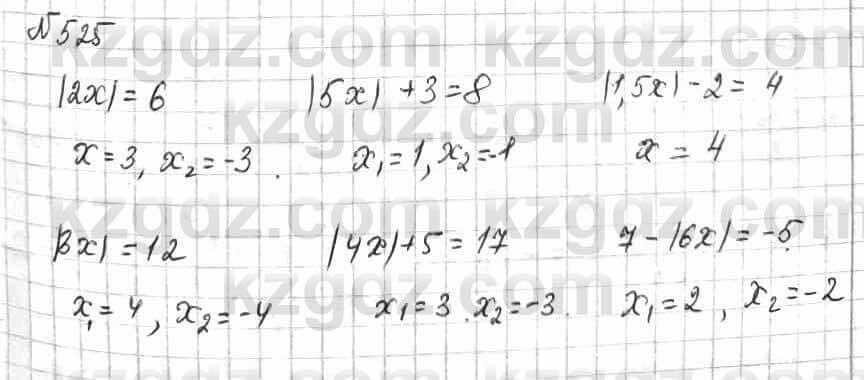 №525
|2x| = 6 |5x| + 3 = 8 |1,5x| - 2 = 4
x = 3, x₂ = -3. x₁ = 1, x₂ = -1 x = 4
|3x| = 12 |4x| + 5 = 17 7 - |6x| = -5
x₁ = 4, x₂ = -4 x₁ = 3. x₂ = -3. x₁ = 2, x₂ = -2
kzgdz.com kzgdz.com
kzgdz.com
kzgdz.com kzgdz.com
kzgdz.com